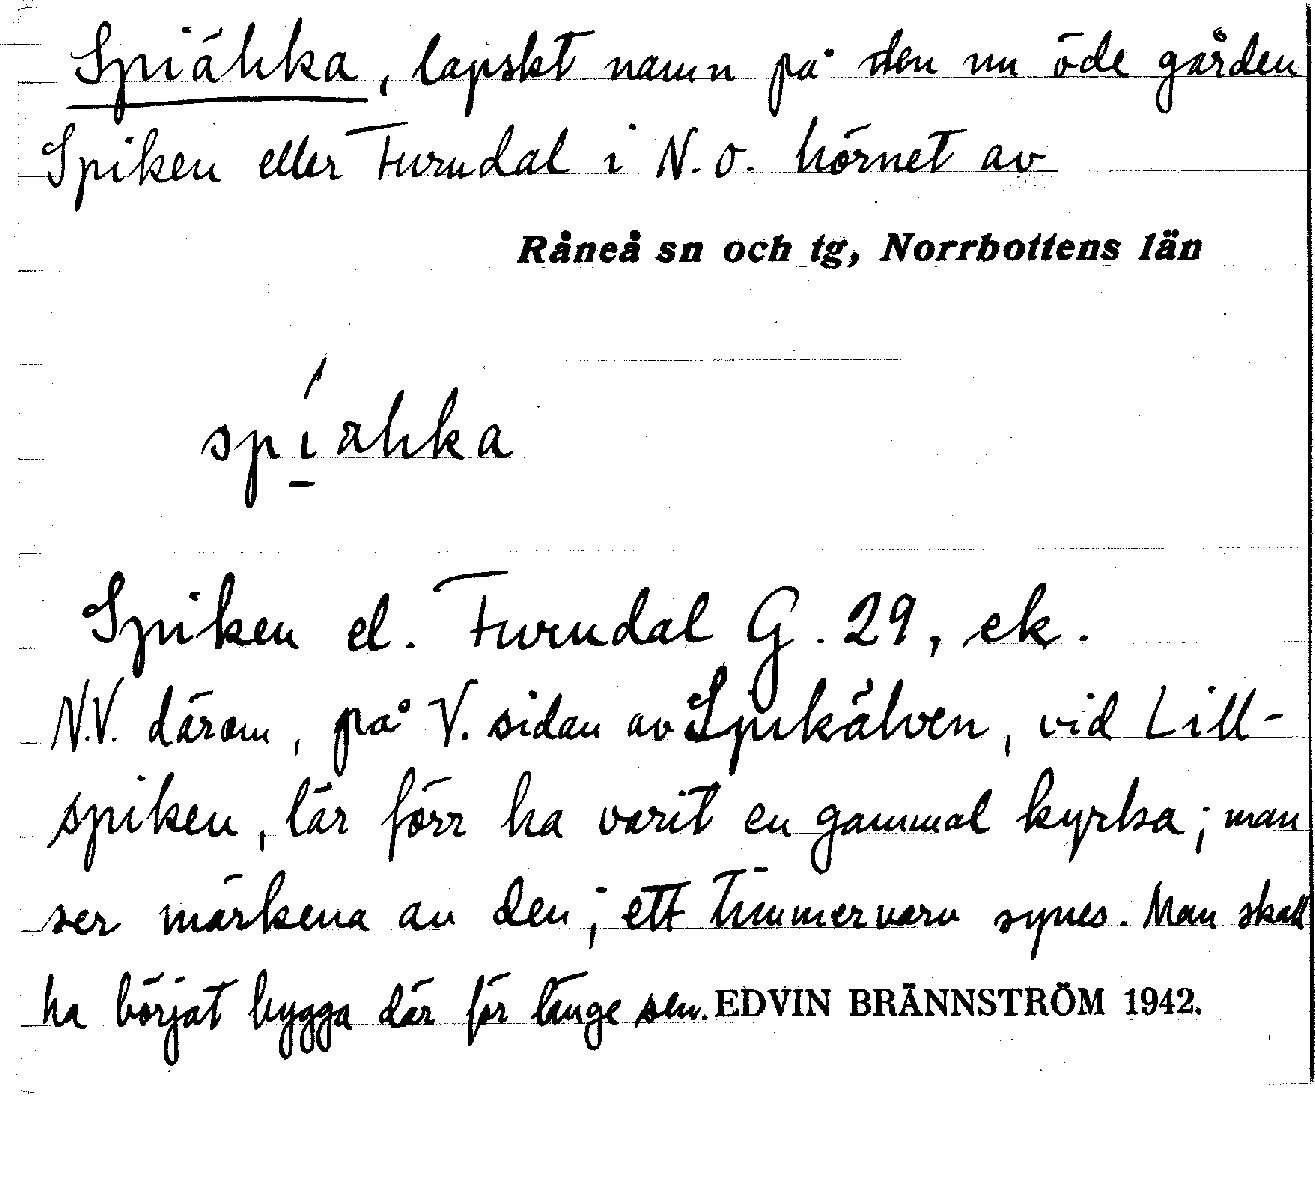 Spiähka, lapskt namn på den nu öde gården
Spiken eller Furudal i N.O. hörnet av
Råneå sn och tg, Norrbottens län
spí̠ähka
Spiken el. Furudal G. 29, ek.
N.V. därom, på V. sidan av Spikälven, vid Lill-
spiken, lär förr ha varit en gammal kyrka; man
ser märkena av den; ett timmervarv synes. Man skall
ha börjat bygga där för länge sen. EDVIN BRÄNNSTRÖM 1942.